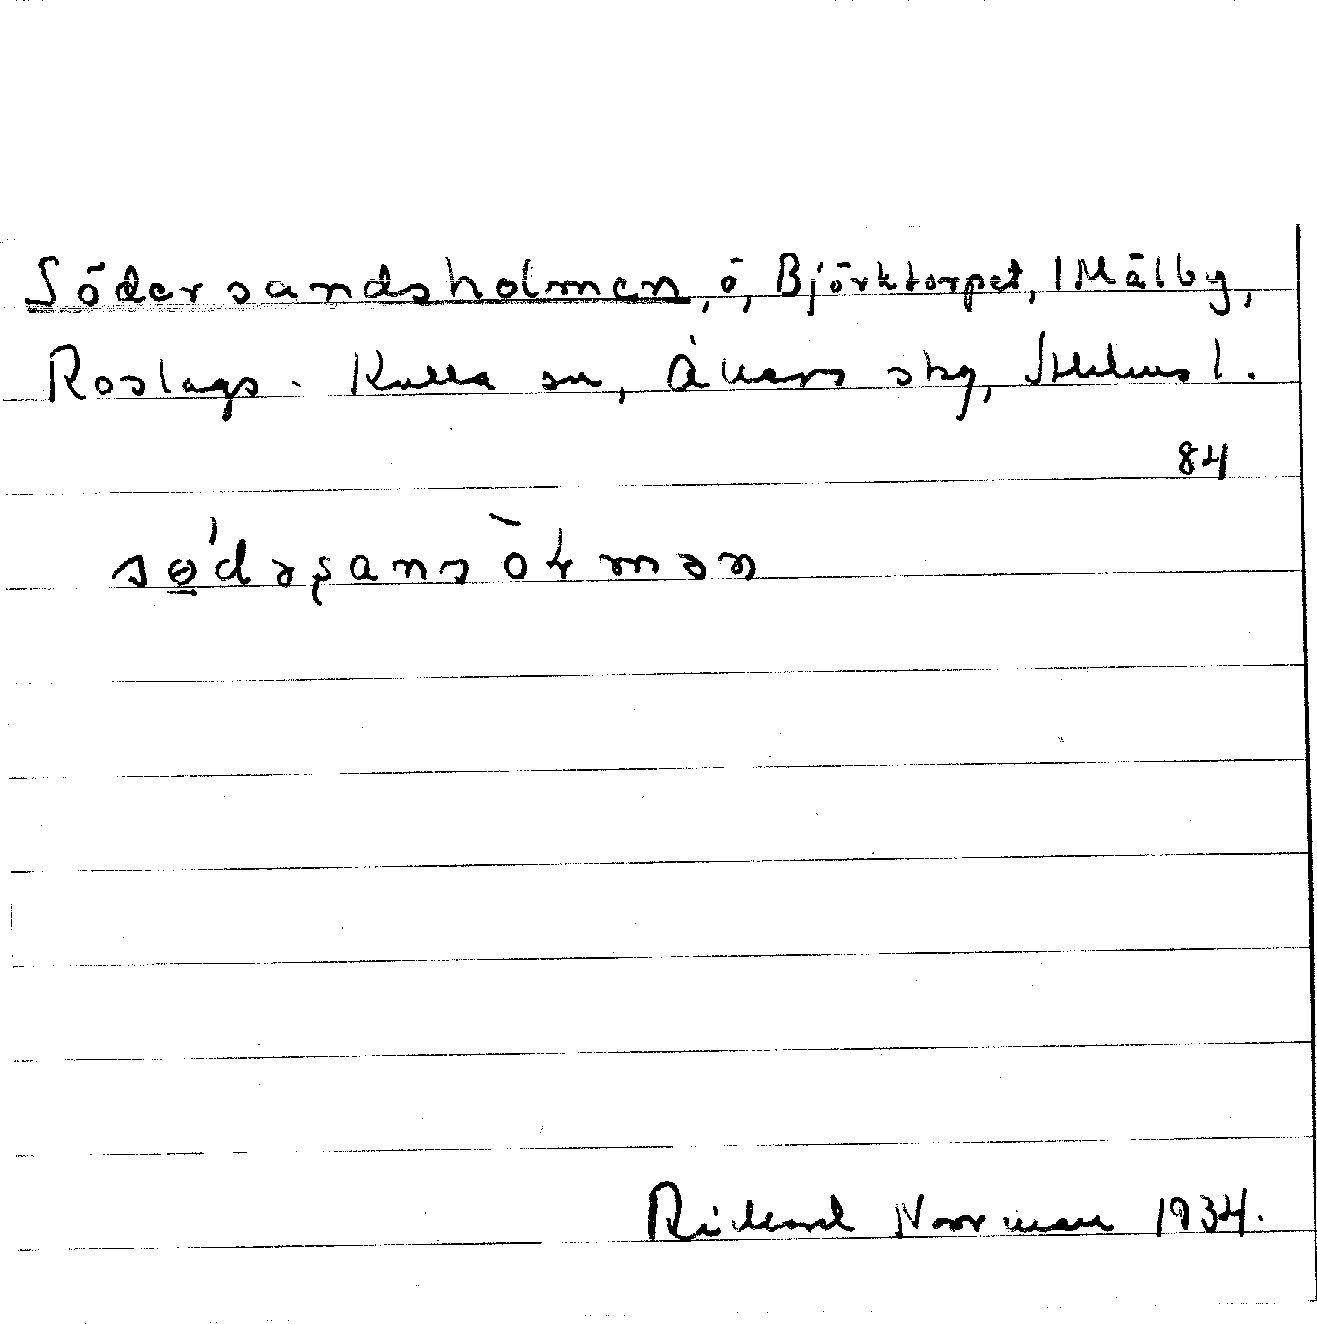 Södersandsholmen, ö, Björktorpet, 1 Mälby,
Roslags-Kulla sn, Åkers skg, Sthlms l.
84
sø'dəʂansòɫmən
Rickard Norrman 1934.